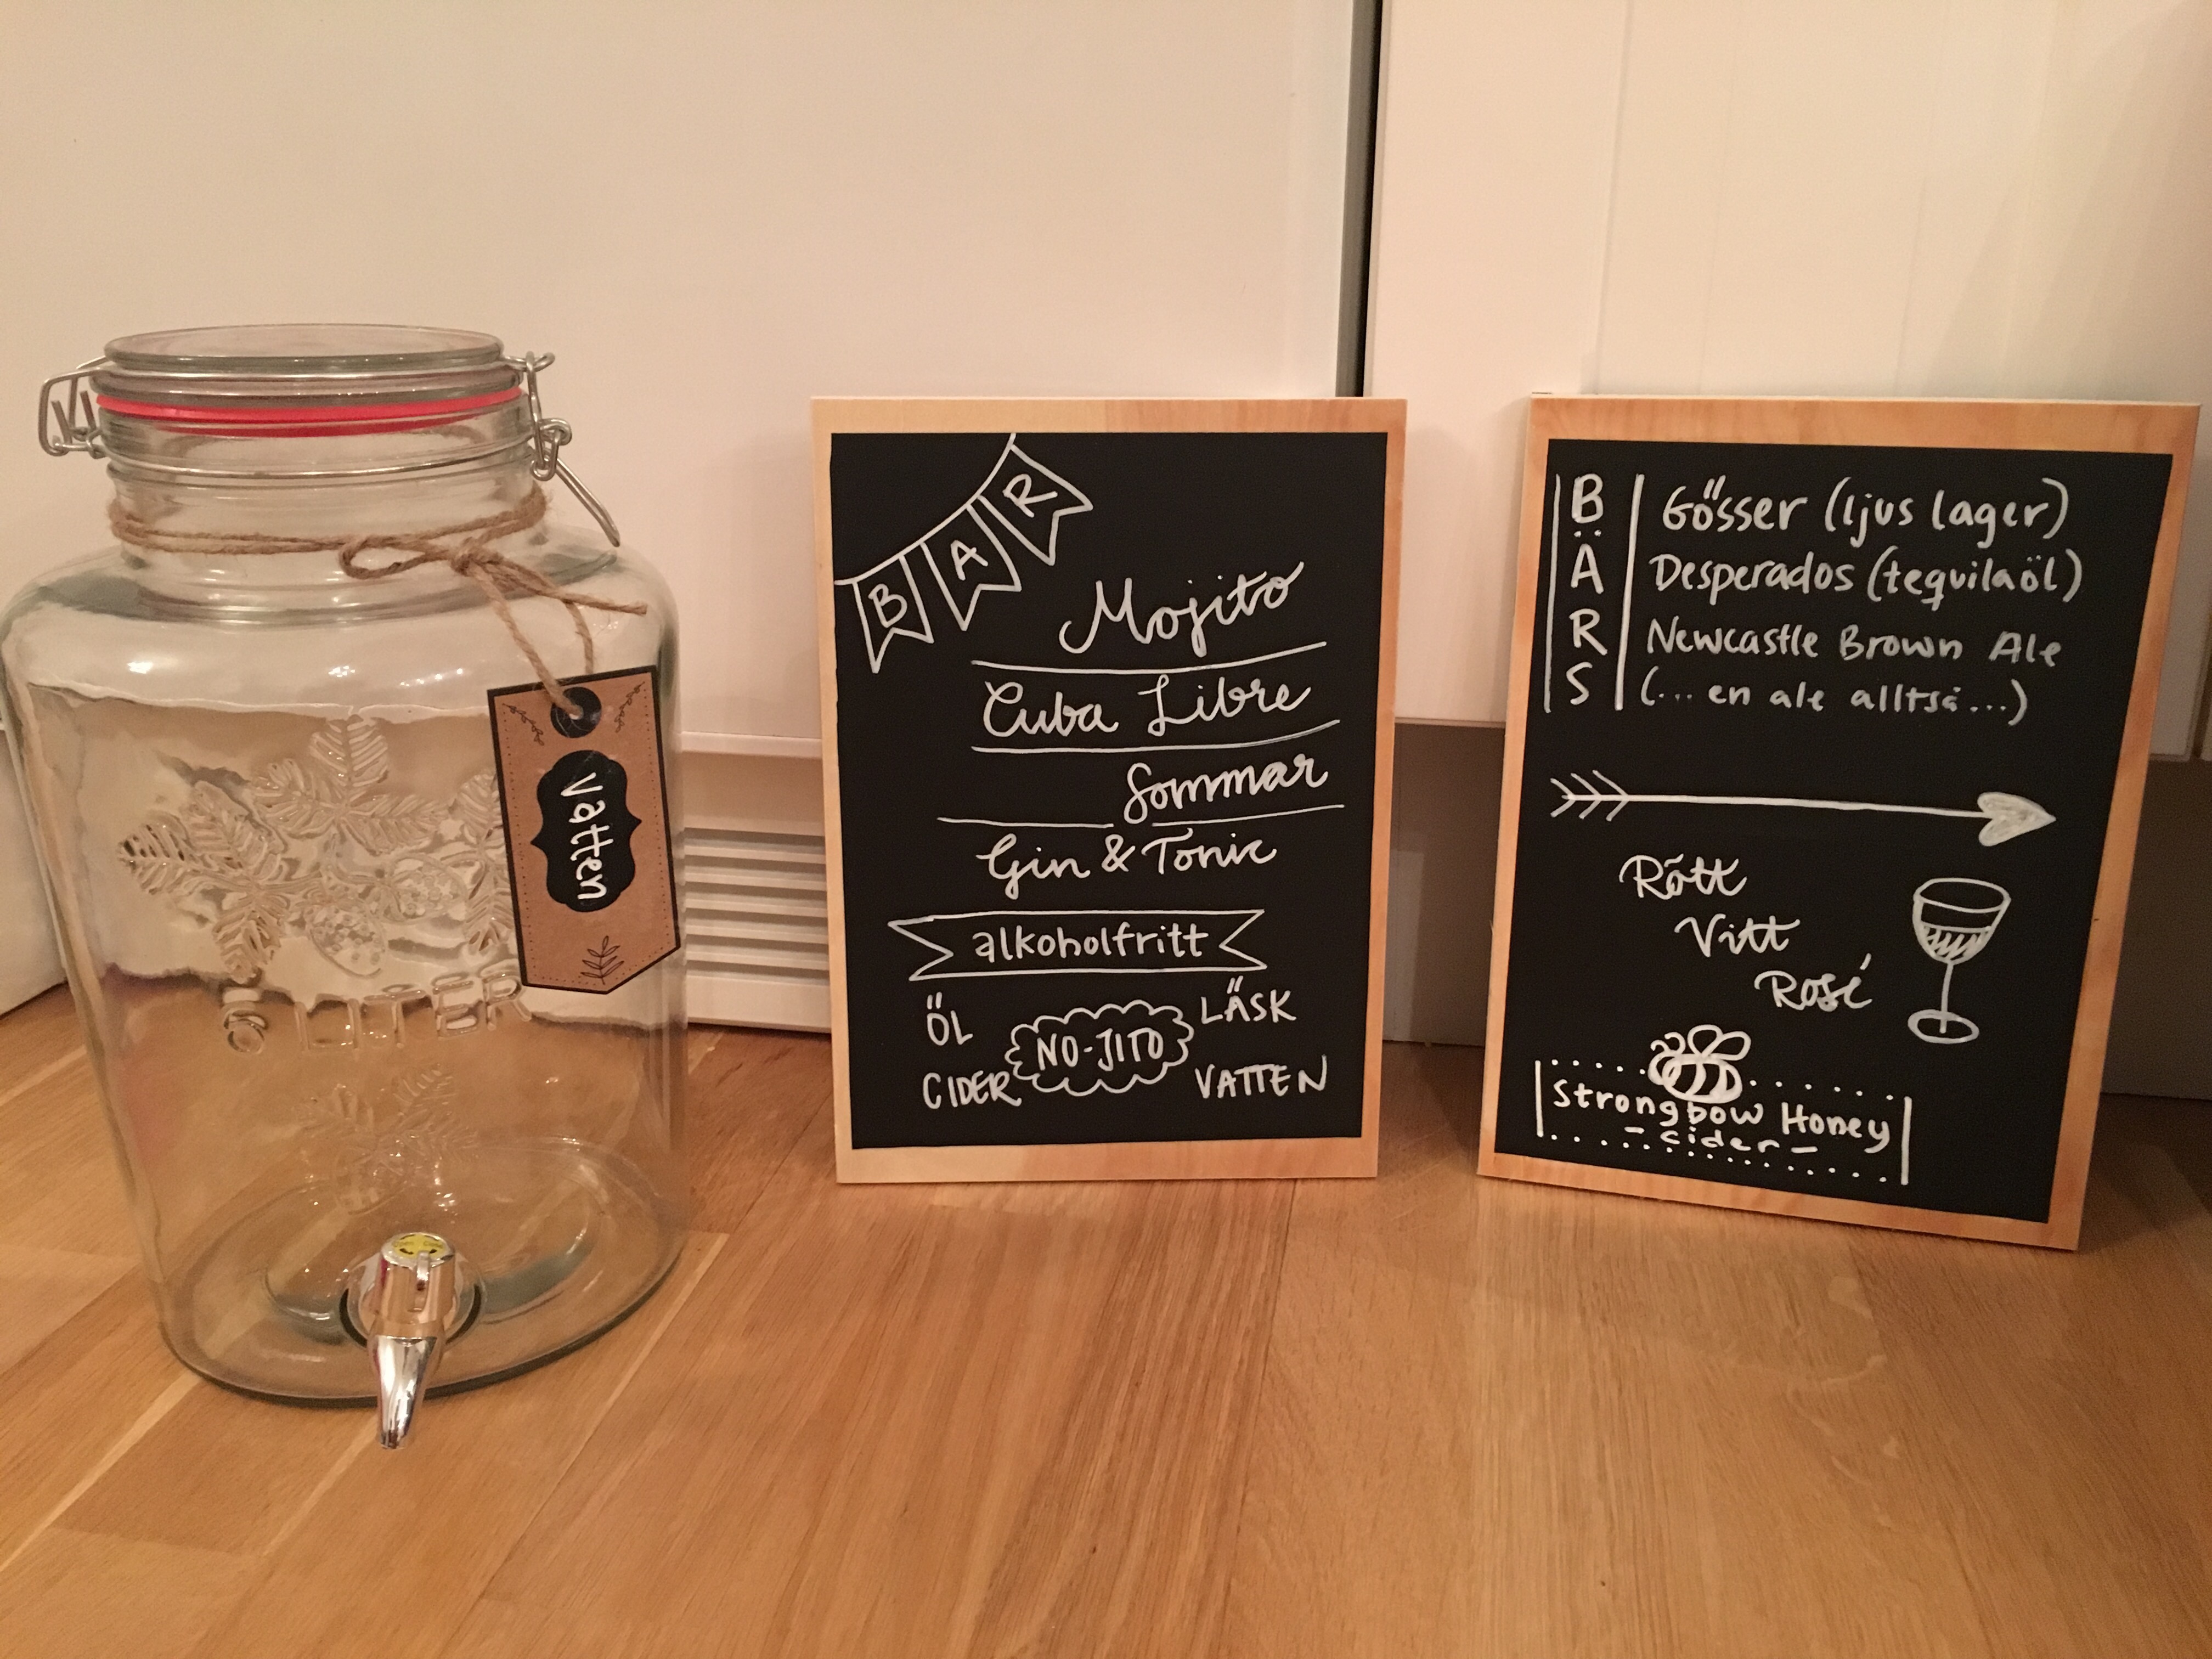 Vatten
5 LITER
BAR
Mojito
Cuba Libre
Sommar
Gin & Tonic
alkoholfritt
ÖL
LÄSK
NO-JITO
CIDER
VATTEN
BÄRS
Gösser (ljus lager)
Desperados (tequilaöl)
Newcastle Brown Ale
(... en ale alltså...)
Rött
Vitt
Rosé
Strongbow Honey
- cider -